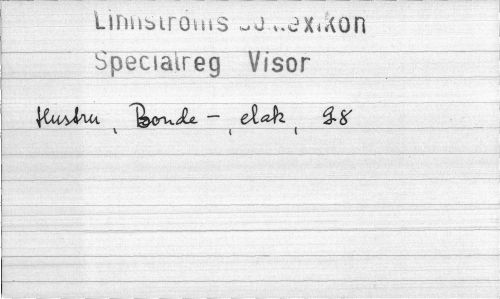 Linnströms
Specialreg Visor
Hustru, Bonde-, elak, 98